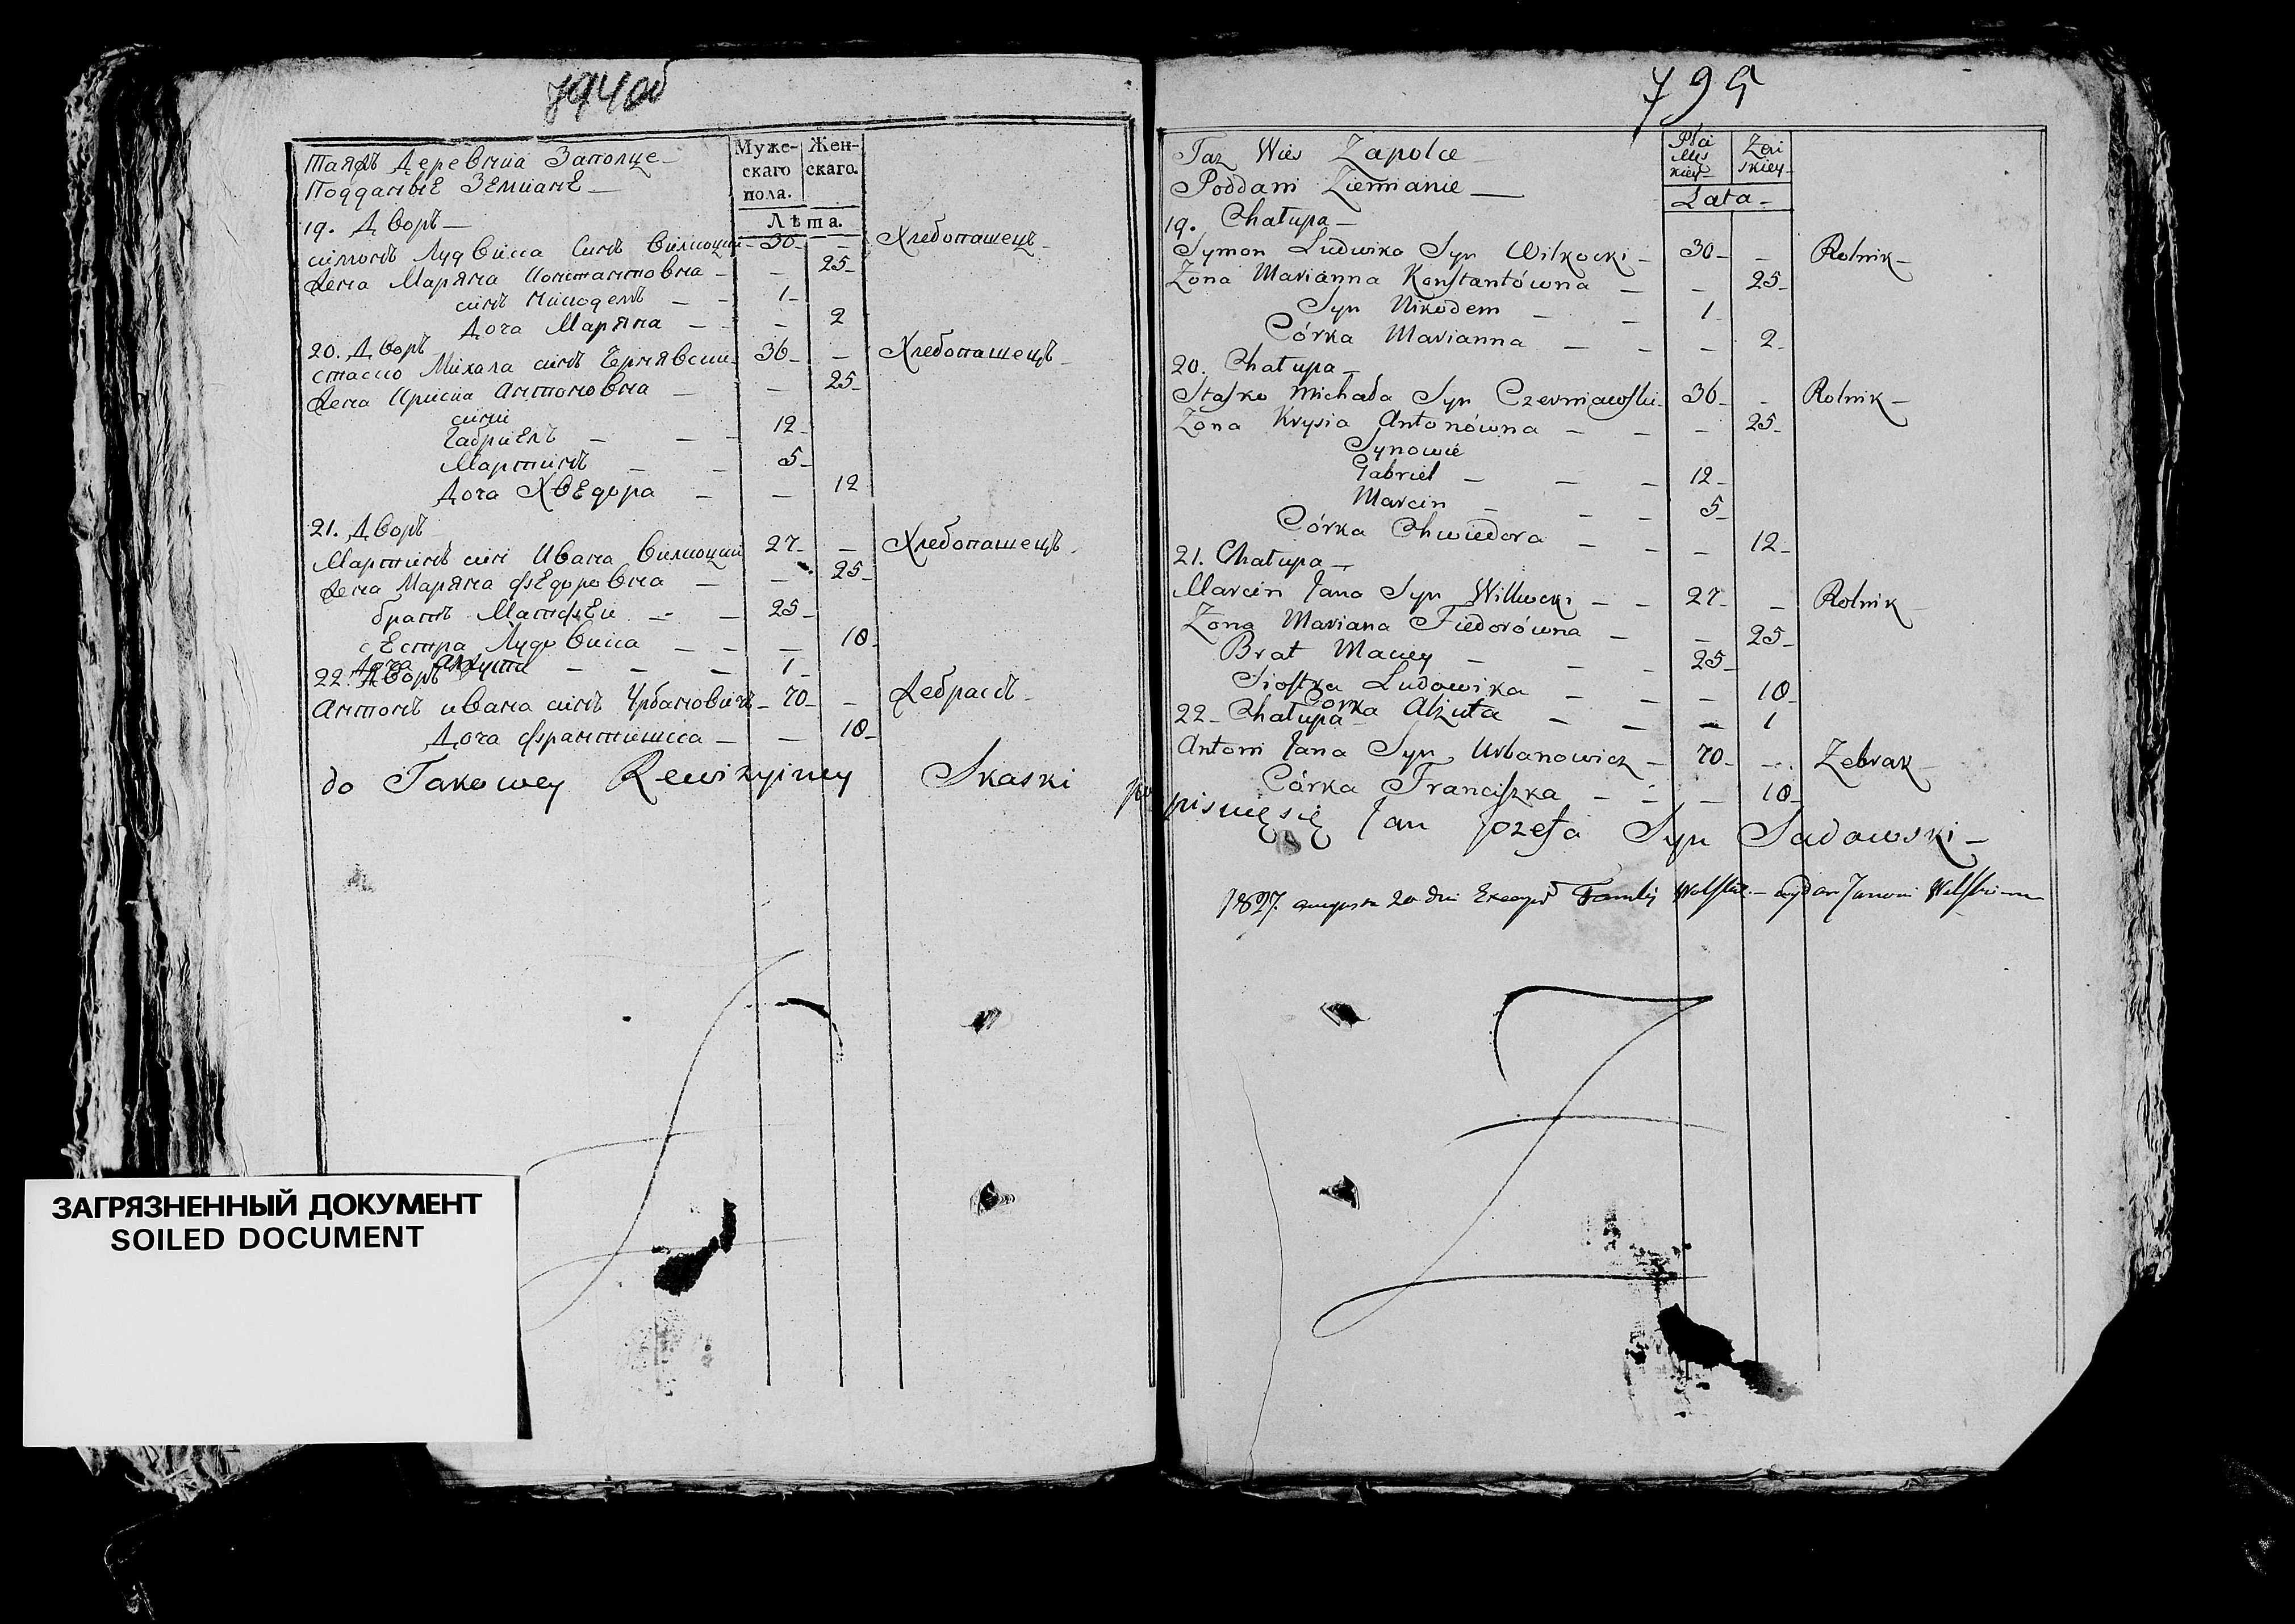 794 об
Таяжъ Деревниа Заполце
Поддание Земиане
Мужескаго пола.
Женскаго.
Лѣта.
19. Дворъ
Симонъ Лудвика Синъ Вилкоцки 30 Хлебопашецъ
Жена Маряна Константовна 25
синъ Никодемъ 1
Доча Маряна 2
20. Дворъ
Стаско Михала синъ Чернявски 36 Хлебопашецъ
Жена Крисиа Антоновна 25
сини
Габриелъ 12
Мартинъ 5
Доча Хведора 12
21. Дворъ
Мартинъ син Ивана Вилкоцки 27 Хлебопашецъ
Жена Маряна Федоровна 25
братъ Матфеи 25
сестра Лудовика 18
Доча 1
22. Дворъ
Антонъ Ивана синъ Урбановичъ 70 Жебракъ
Доча Франтишка 18
795
Taz Wies Zapolce
Poddani Ziemianie
Płci Męskiey
Żeńskiey
Lata
19. Chałupa
Symon Ludwika Syn Wilkocki 30 Rolnik
Żona Marianna Konstantówna 25
Syn Nikodem 1
Córka Marianna 2
20. Chałupa
Stasko Michała Syn Czerniawski 36 Rolnik
Żona Krysia Antonówna 25
Synowie
Gabriel 12
Marcin 5
Córka Chwiedora 12
21. Chałupa
Marcin Jana Syn Wilkocki 27 Rolnik
Żona Mariana Fiedorówna 25
Brat Maciey 25
Siostra Ludowika 18
Corka Alżuta 1
22. Chałupa
Antoni Jana Syn Urbanowicz 70 Zebrak
Córka Franciszka 18
do Takowey Rewizyiney Skaski podpisuię się Jan Jozefa Syn Sadowski
1827. augusta 20 dni Familij
ЗАГРЯЗНЕННЫЙ ДОКУМЕНТ
SOILED DOCUMENT